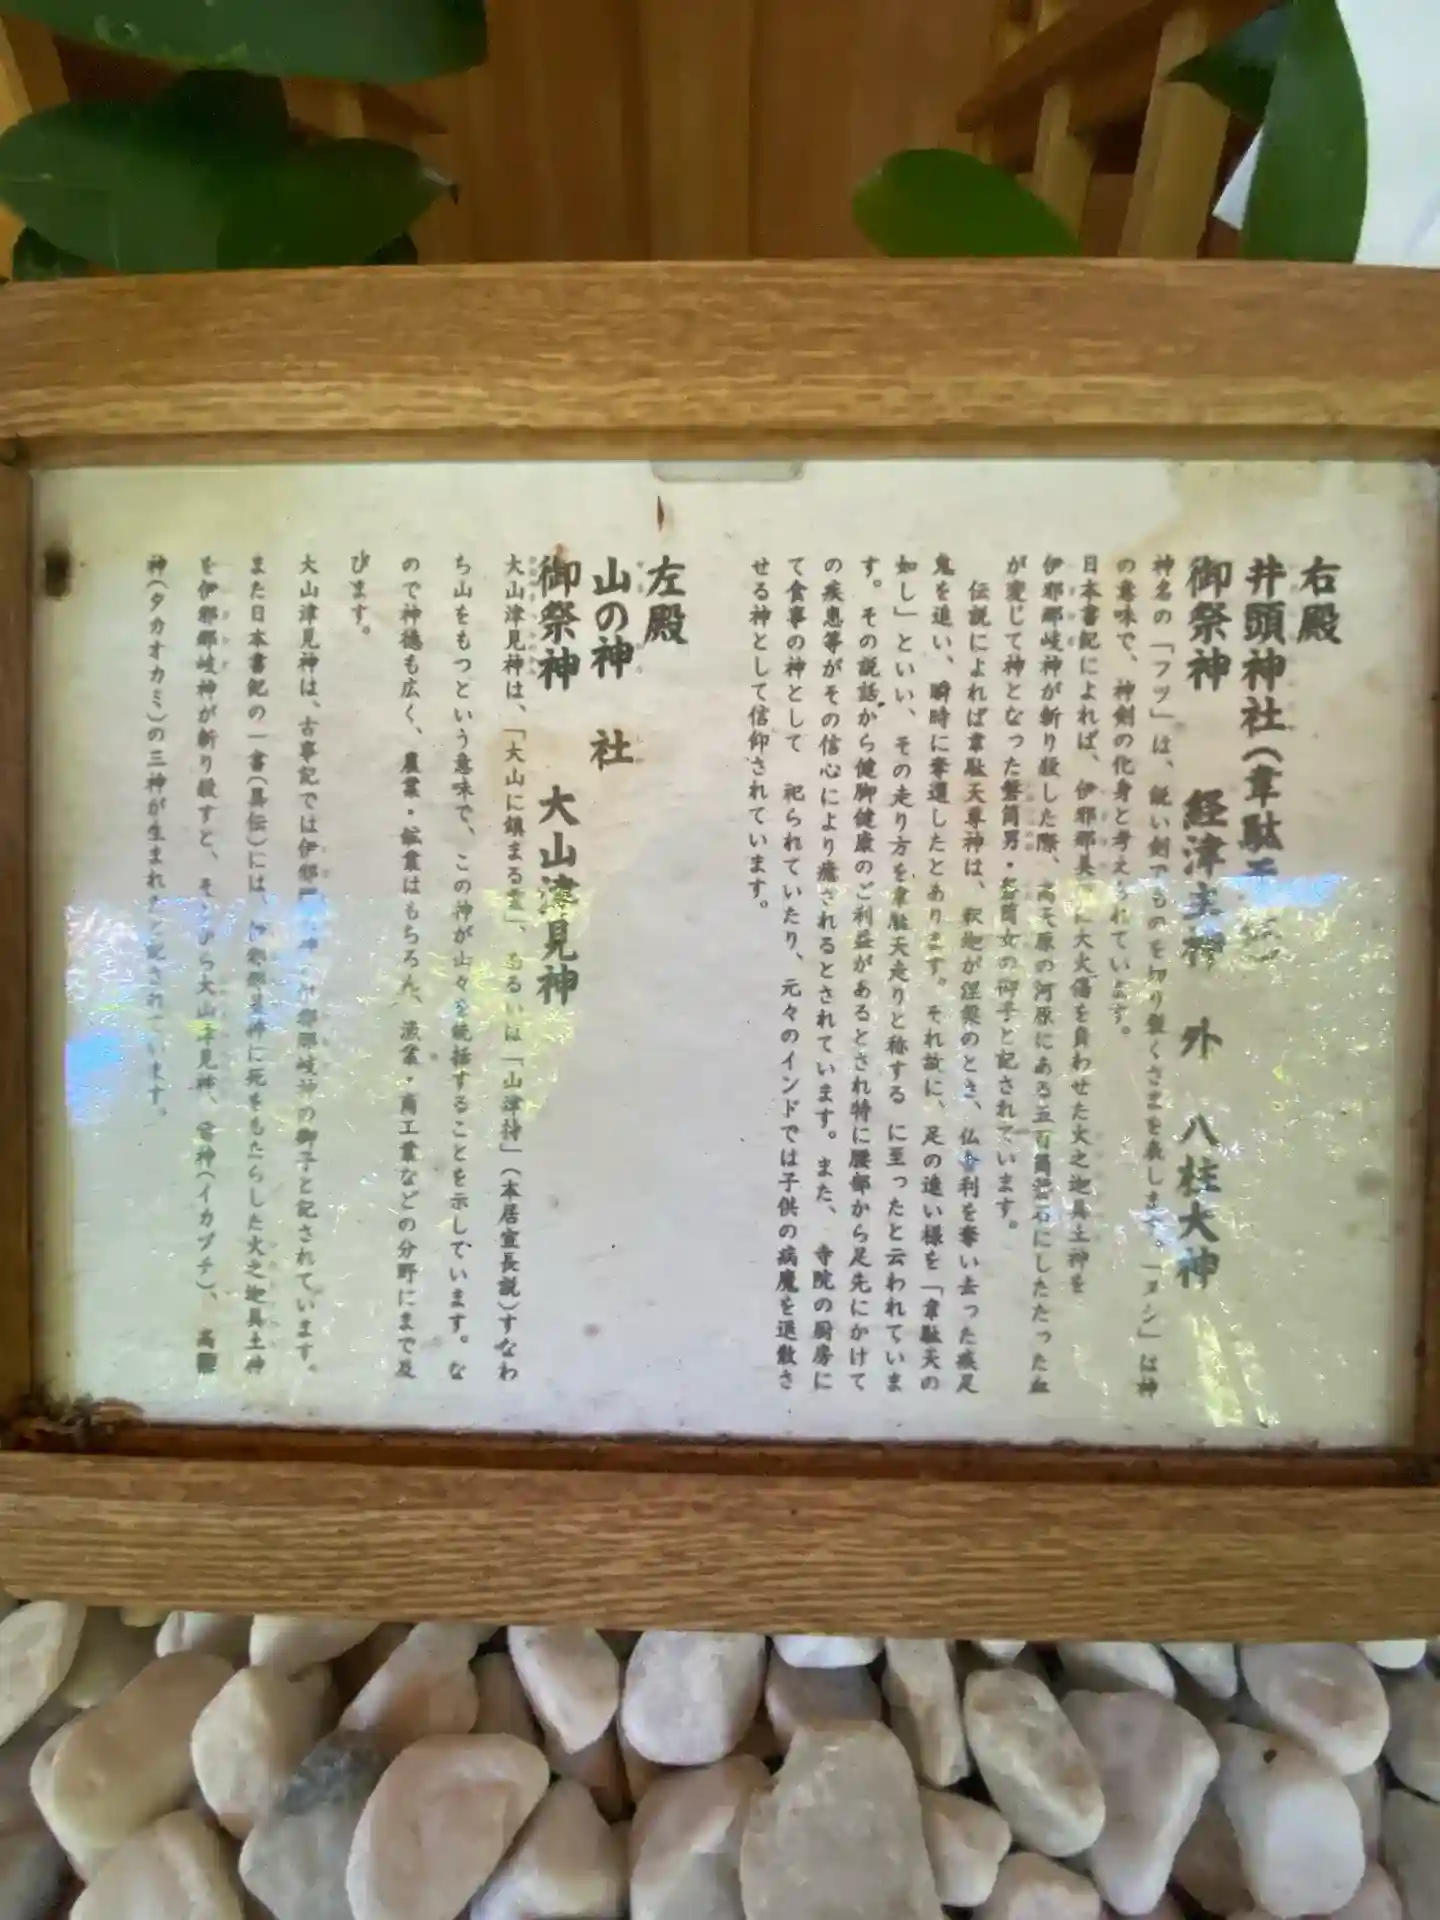 右殿
井頭神社(韋駄天
御祭神　経津主神　外　八柱大神
神名の「フツ」は、鋭い剣でものを切り裂くさまを表します。「ヌシ」は神
の意味で、神剣の化身と考えられています。
日本書記によれば、伊邪那美 に大火傷を負わせた火之迦具土神を
伊邪那岐神が斬り殺した際、高天原の河原にある五百箇磐石にしたたった血
が変じて神となった磐筒男・磐筒女の御子と記されています。
伝説によれば韋駄天尊神は、釈迦が涅槃のとき、仏舎利を奪い去った疾足
鬼を追い、瞬時に奪還したとあります。それ故に、足の速い様を「韋駄天の
如し」といい、その走り方を韋駄天走りと称する に至ったと云われていま
す。その説話から健脚健康のご利益があるとされ特に腰部から足先にかけて
の疾患等がその信心により癒されるとされています。また、寺院の厨房に
て食事の神として　祀られていたり、元々のインドでは子供の病魔を退散さ
せる神として信仰されています。
左殿
山の神　社
御祭神　　大山津見神
大山津見神は、「大山に鎮まる霊」、あるいは「山津持」(本居宣長説)すなわ
ち山をもつという意味で、この神が山々を統括することを示しています。な
ので神徳も広く、農業・鉱業はもちろん、漁業・商工業などの分野にまで及
びます。
大山津見神は、古事記では伊邪那 神、伊邪那岐神の御子と記されています。
また日本書紀の一書(異伝)には、伊邪那美神に死をもたらした火之迦具土神
を伊邪那岐神が斬り殺すと、そこから大山津見神、雷神(イカヅチ)、高龗
神(タカオカミ)の三神が生まれたと記されています。